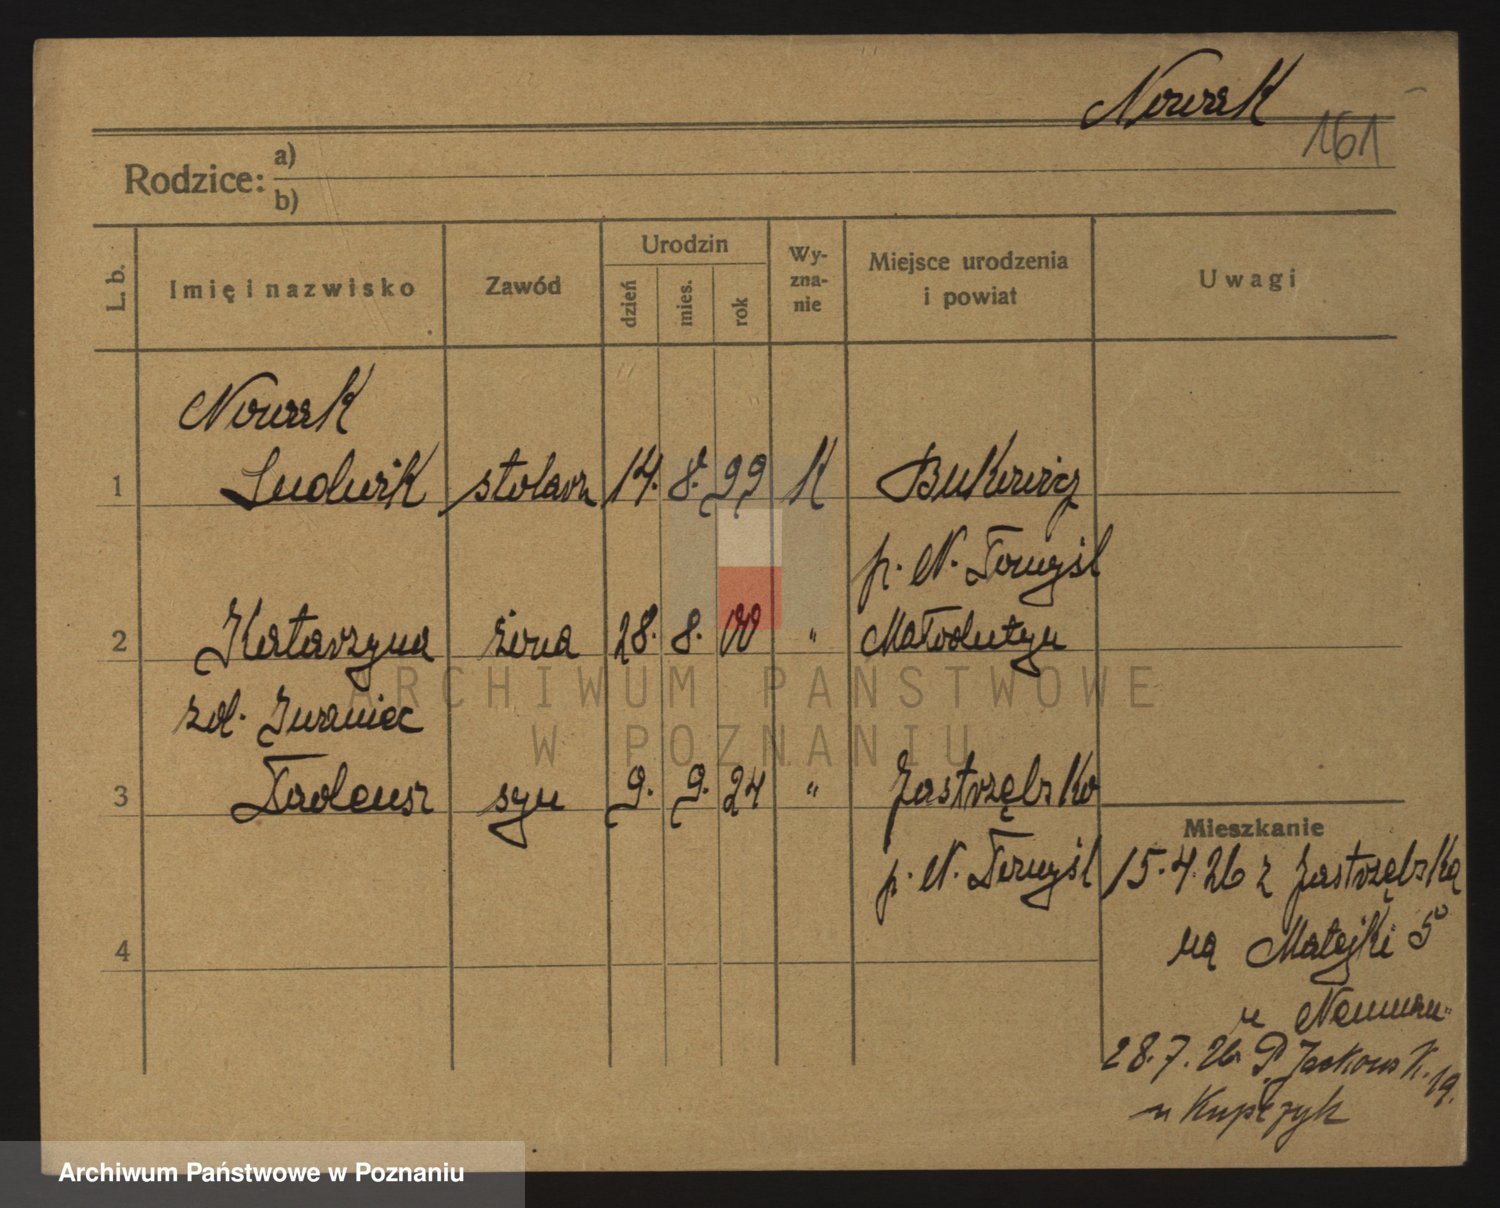 Nowak
161
Rodzice: a)
b)
L. b. Imię i nazwisko Zawód Urodzin dzień mies. rok Wy-zna-nie Miejsce urodzenia i powiat Uwagi
Nowak
1 Ludwik stolarz 14. 8. 99 K Bukowiec
p. N. Tomyśl
2 Katarzyna żona 28. 8. 00 " Małodutyn
zd. Juraniec
3 Tadeusz syn 9. 9. 24 " Jastrzębsko
Mieszkanie
p. N. Tomyśl 15.4.26 z Jastrzębska
4 na Matejki 5
u Neuman
28.7.26 P. Jackows K. 19.
u Kupczyk
ARCHIWUM PAŃSTWOWE
W POZNANIU
Archiwum Państwowe w Poznaniu